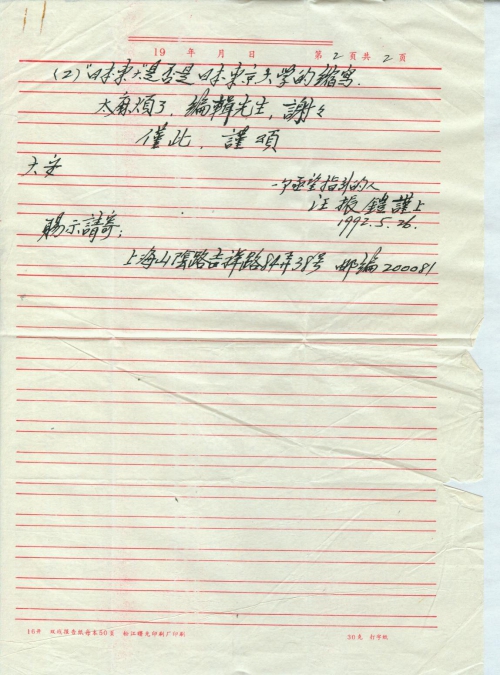 19 年 月 日 第 2 页共 2 页
(2)"日本东大"是否是日本東京大学的縮寫.
太麻烦了, 编輯先生, 謝々
僅此, 謹頌
大安
一个亟望指引的人
汪振鎧謹上
1992.5.26.
賜示請寄:
上海山陰路吉祥路84弄38号 邮编200081
16开 双线报告纸每本50页 松江曙光印刷厂印刷 30克 打字纸